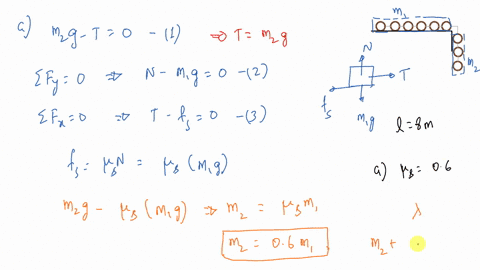 a) m₂g - T = 0 - (1) ⇒ T = m₂g
ΣFy = 0 ⇒ N - m₁g = 0 - (2)
ΣFx = 0 ⇒ T - fₛ = 0 - (3)
fₛ = μₛN = μₛ(m₁g)
m₂g - μₛ(m₁g) ⇒ m₂ = μₛm₁
m₂ = 0.6 m₁
m₁
m₂
N
T
fₛ
m₁g
l = 8m
a) μₛ = 0.6
λ
m₂ +